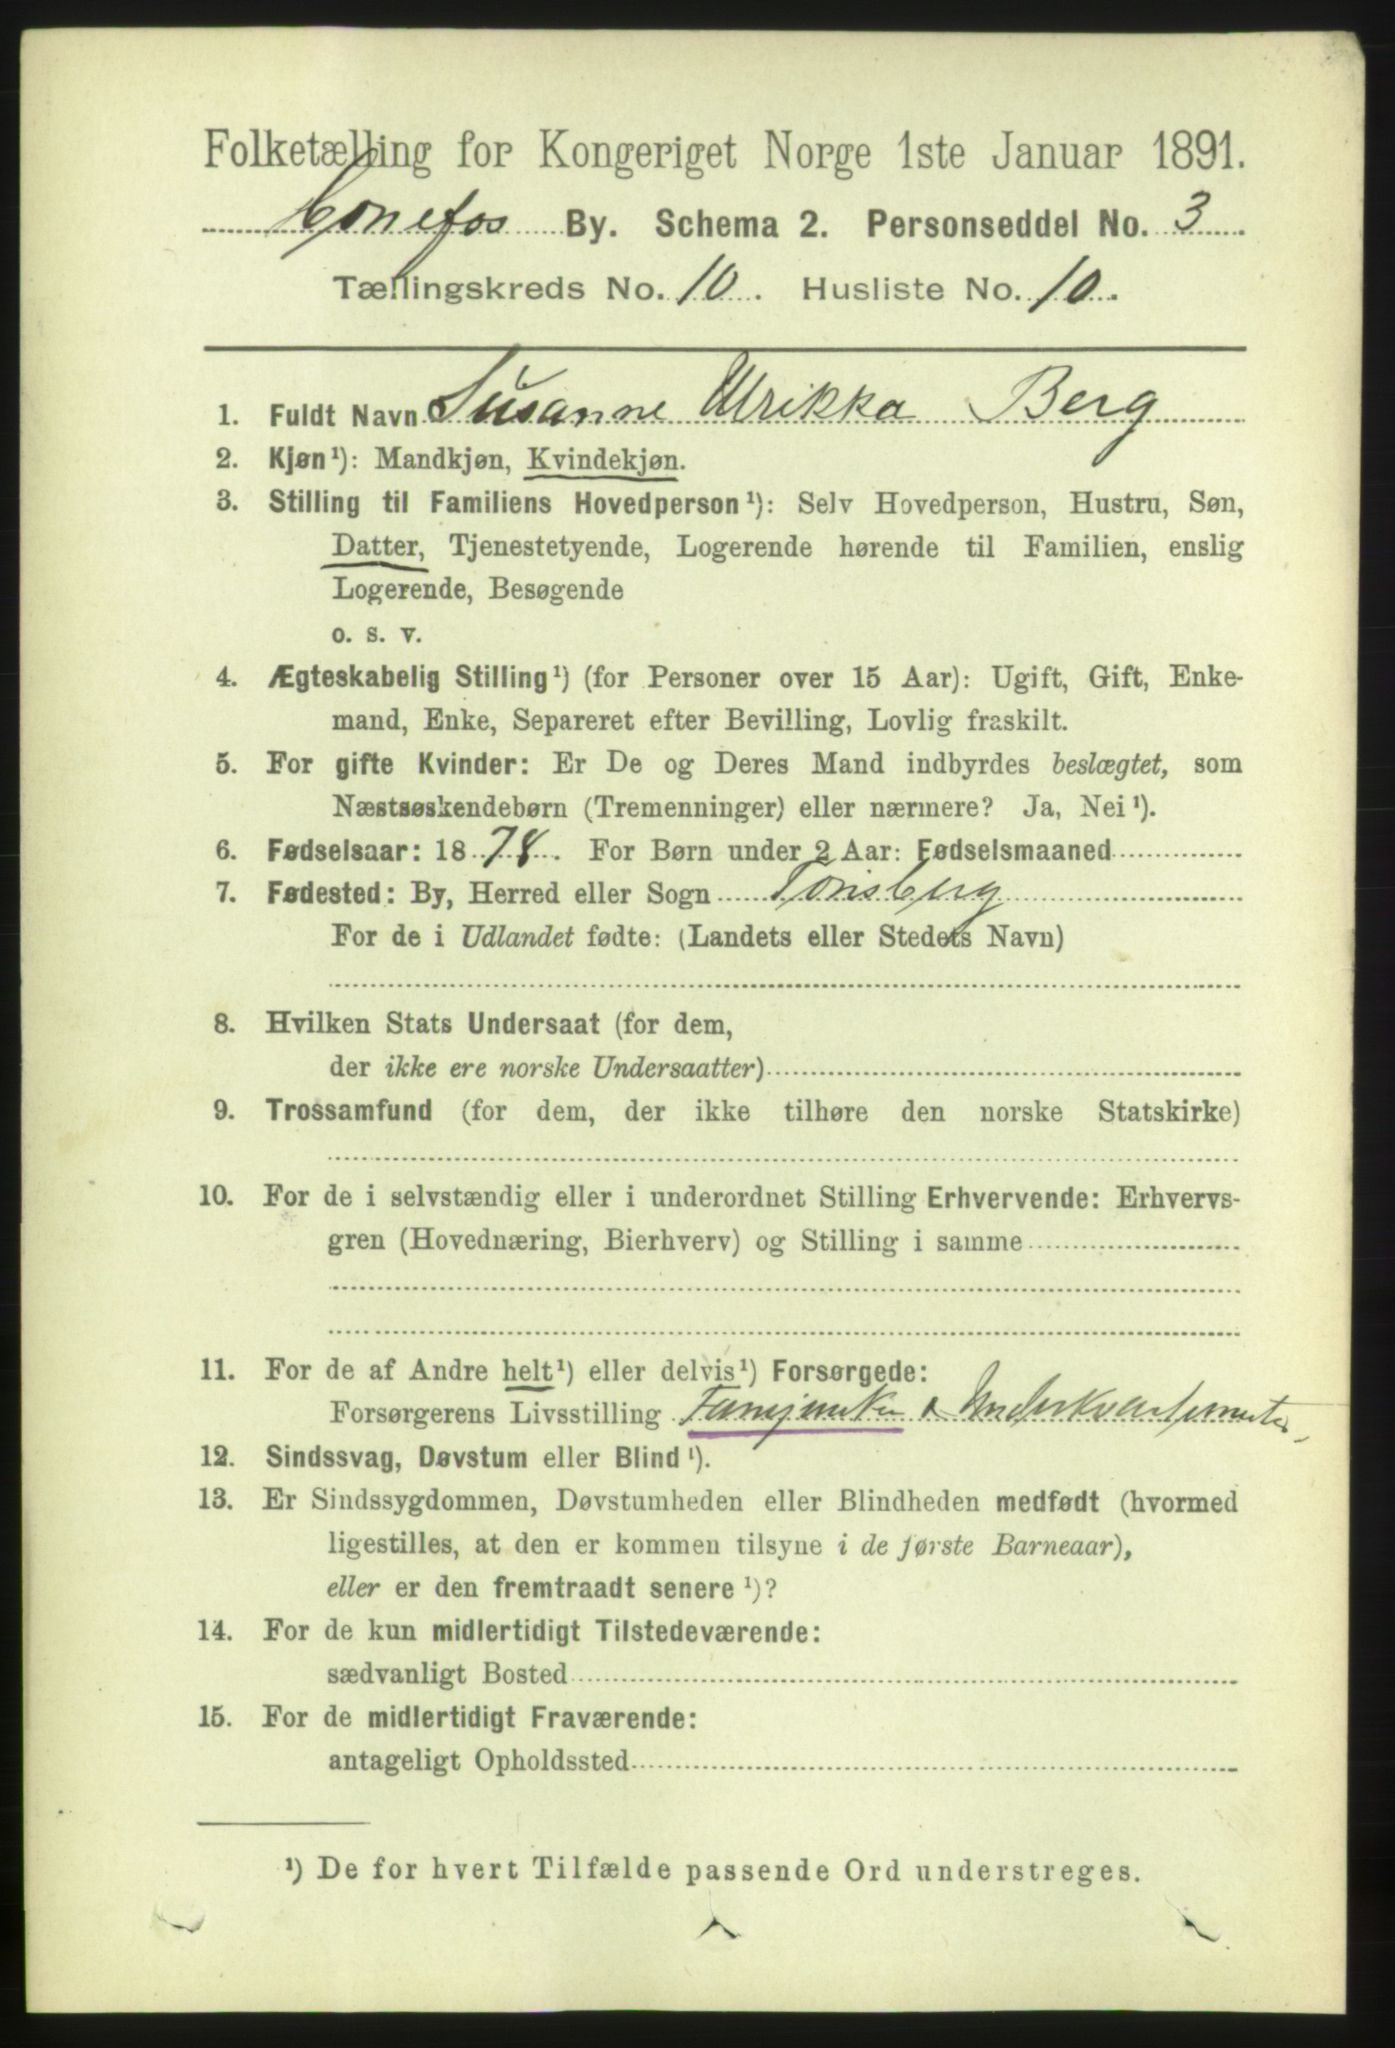 Folketælling for Kongeriget Norge 1ste Januar 1891.
Hønefos By. Schema 2. Personseddel No. 3
Tællingskreds No. 10. Husliste No. 10.
1. Fuldt Navn Susanne Ulrikka Berg
2. Kjøn¹): Mandkjøn, Kvindekjøn.
3. Stilling til Familiens Hovedperson¹): Selv Hovedperson, Hustru, Søn,
Datter, Tjenestetyende, Logerende hørende til Familien, enslig
Logerende, Besøgende
o. s. v.
4. Ægteskabelig Stilling¹) (for Personer over 15 Aar): Ugift, Gift, Enke-
mand, Enke, Separeret efter Bevilling, Lovlig fraskilt.
5. For gifte Kvinder: Er De og Deres Mand indbyrdes beslægtet, som
Næstsøskendebørn (Tremenninger) eller nærmere? Ja, Nei¹).
6. Fødselsaar: 1878. For Børn under 2 Aar: Fødselsmaaned
7. Fødested: By, Herred eller Sogn Tønsberg
For de i Udlandet fødte: (Landets eller Stedets Navn)
8. Hvilken Stats Undersaat (for dem,
der ikke ere norske Undersaatter)
9. Trossamfund (for dem, der ikke tilhøre den norske Statskirke)
10. For de i selvstændig eller i underordnet Stilling Erhvervende: Erhvervs-
gren (Hovednæring, Bierhverv) og Stilling i samme
11. For de af Andre helt¹) eller delvis¹) Forsørgede:
Forsørgerens Livsstilling Fanejunker & Underkvartermester
12. Sindssvag, Døvstum eller Blind¹).
13. Er Sindssygdommen, Døvstumheden eller Blindheden medfødt (hvormed
ligestilles, at den er kommen tilsyne i de første Barneaar),
eller er den fremtraadt senere¹)?
14. For de kun midlertidigt Tilstedeværende:
sædvanligt Bosted
15. For de midlertidigt Fraværende:
antageligt Opholdssted
¹) De for hvert Tilfælde passende Ord understreges.